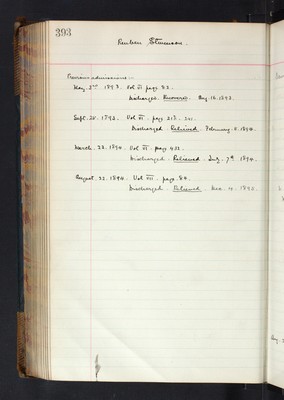 393
Reuben Stevenson.
Previous admissions —
May. 3rd 1893. Vol VI page 32.
Discharged. Recovered. Aug. 16. 1893.
Sept. 20. 1893. Vol VI. page 213.
Discharged. Relieved. February. 5. 1894.
March. 23. 1894. Vol VI. page 432.
Discharged. Relieved. July. 7th 1894.
August. 22. 1894. Vol VII. page. 84.
Discharged. Relieved. Dec. 4. 1895.